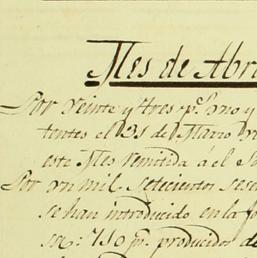 Mes de Abri
Por veinte y tres p.s uno y
tentes el 31 de Marzo
este Mes remitida á el
Por un mil setecientos sese
se han introducido en la fo
sn: 710 ps. producidos de